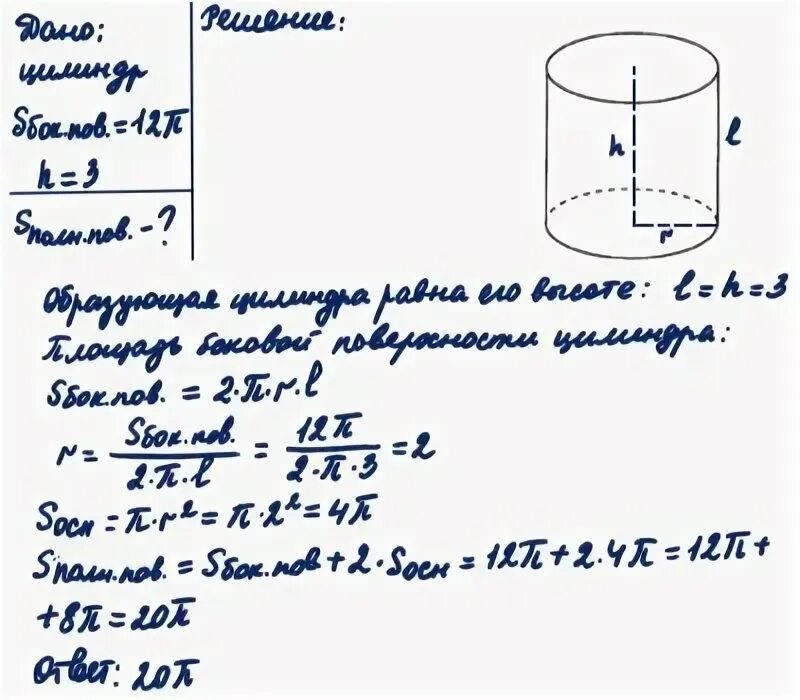 Дано:
цилиндр
Sбок.пов. = 12π
h = 3
Sполн.пов. - ?
Решение:
h
l
r
Образующая цилиндра равна его высоте: l = h = 3
Площадь боковой поверхности цилиндра:
Sбок.пов. = 2·π·r·l
r = Sбок.пов. / 2·π·l = 12π / 2·π·3 = 2
Sосн = π·r² = π·2² = 4π
Sполн.пов. = Sбок.пов + 2·Sосн = 12π + 2·4π = 12π +
+ 8π = 20π
Ответ: 20π